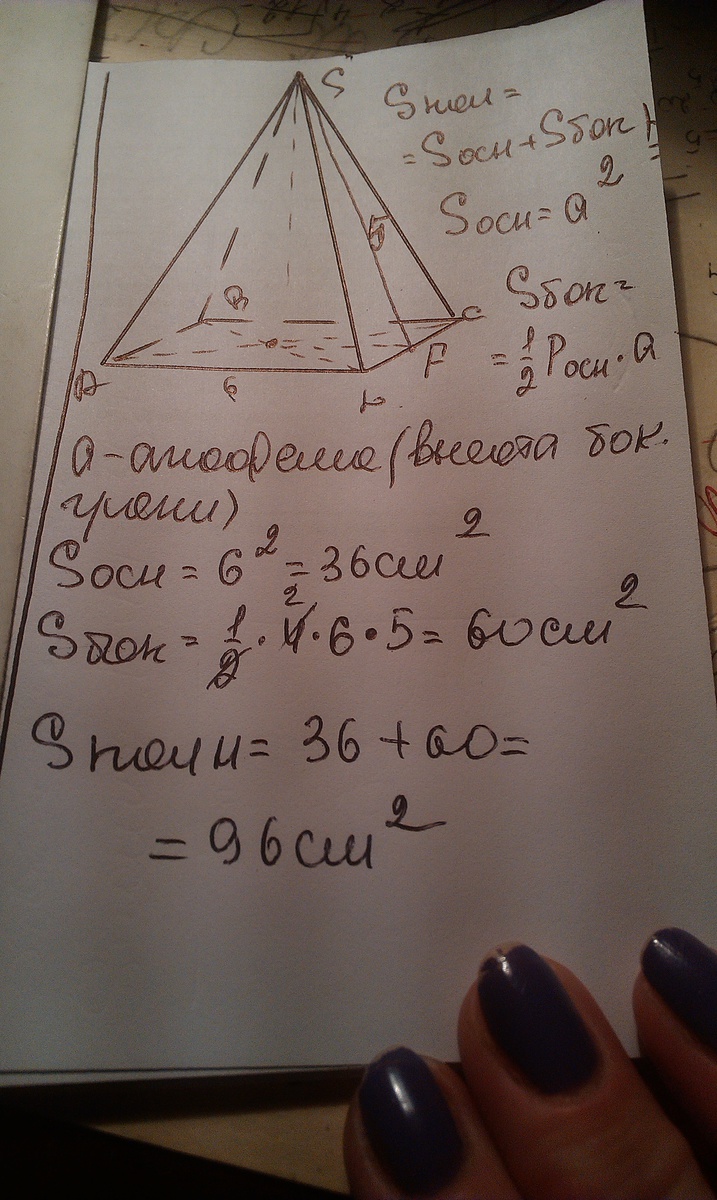 S
Sпол =
= Sосн + Sбок
Sосн = a²
Sбок =
= 1/2 Pосн · a
5
B
C
F
A
6
D
a - апофема (высота бок.
грани)
Sосн = 6² = 36 см²
2
Sбок = 1/2 · 4 · 6 · 5 = 60 см²
Sполн = 36 + 60 =
= 96 см²